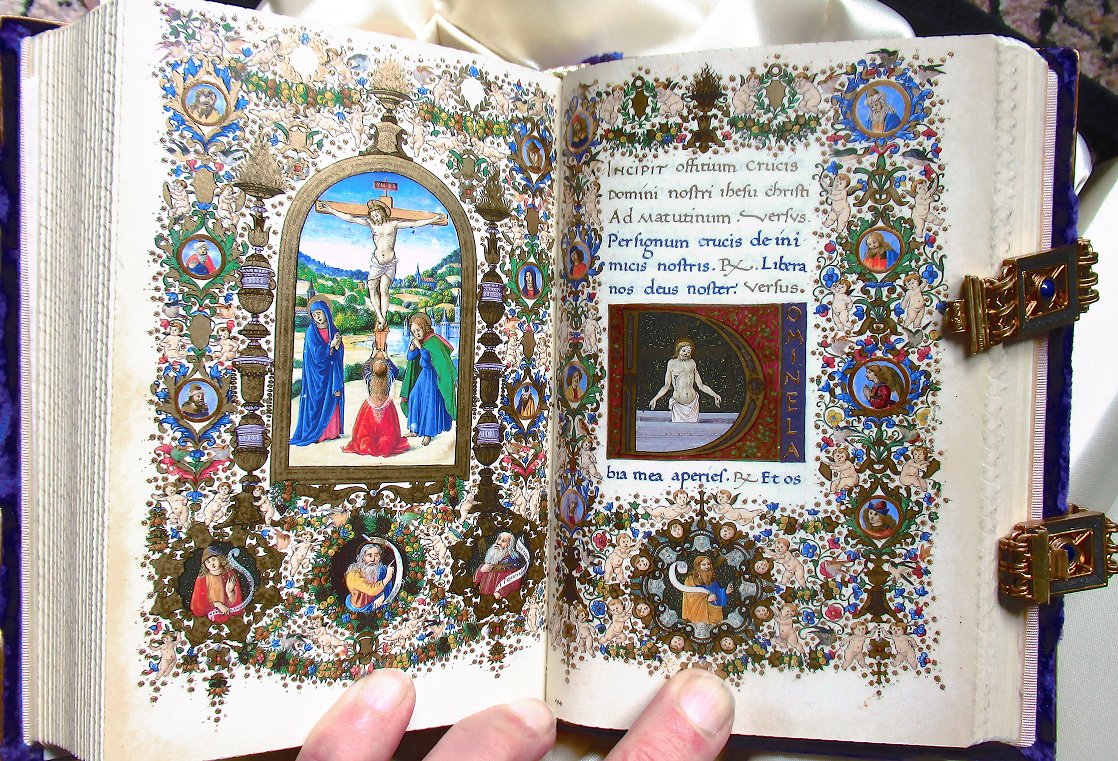 INCIPIT offitium crucis
Domini nostri ihesu christi
Ad Matutinum. Versus.
Per signum crucis de ini
micis nostris. R. Libera
nos deus noster. Versus.
DOMINE LA
bia mea aperies. R. Et os